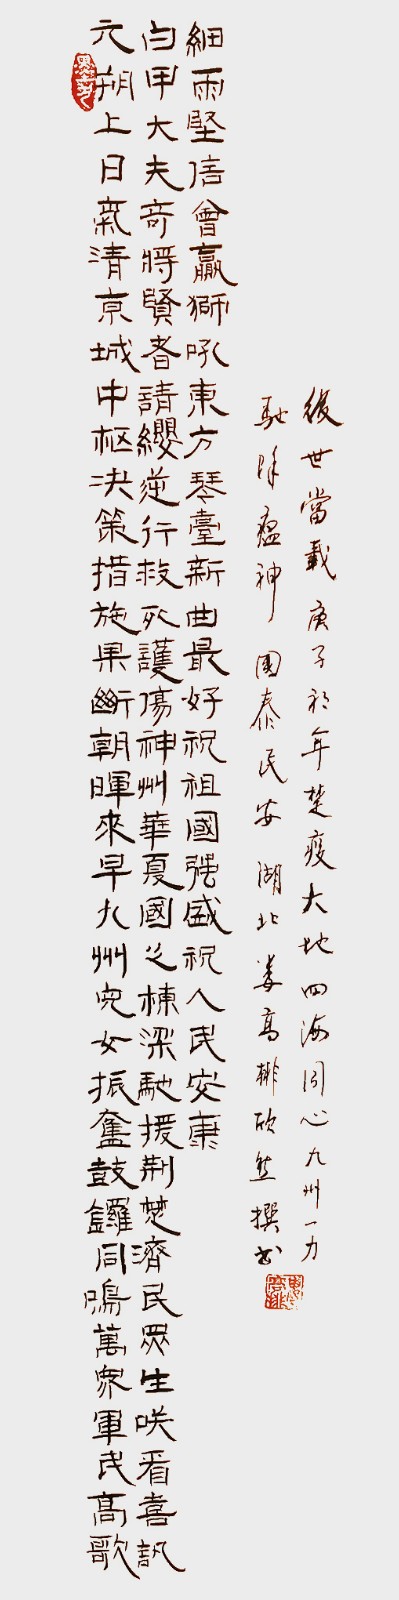 元朔上日氣清京城中枢决策措施果斷朝暉來早九州兒女振奮鼓鑼同鳴萬衆軍民高歌
白甲大夫奇將賢者請纓逆行救死護傷神州華夏國之棟梁馳援荆楚濟民眾生咲看喜訊
細雨堅信曾贏獅吼東方琴臺新曲最好祝祖國强盛祝人民安康
後世當載庚子初年楚疫大地四海同心九州一力
馳除瘟神國泰民安湖北婁高排欣然撰书